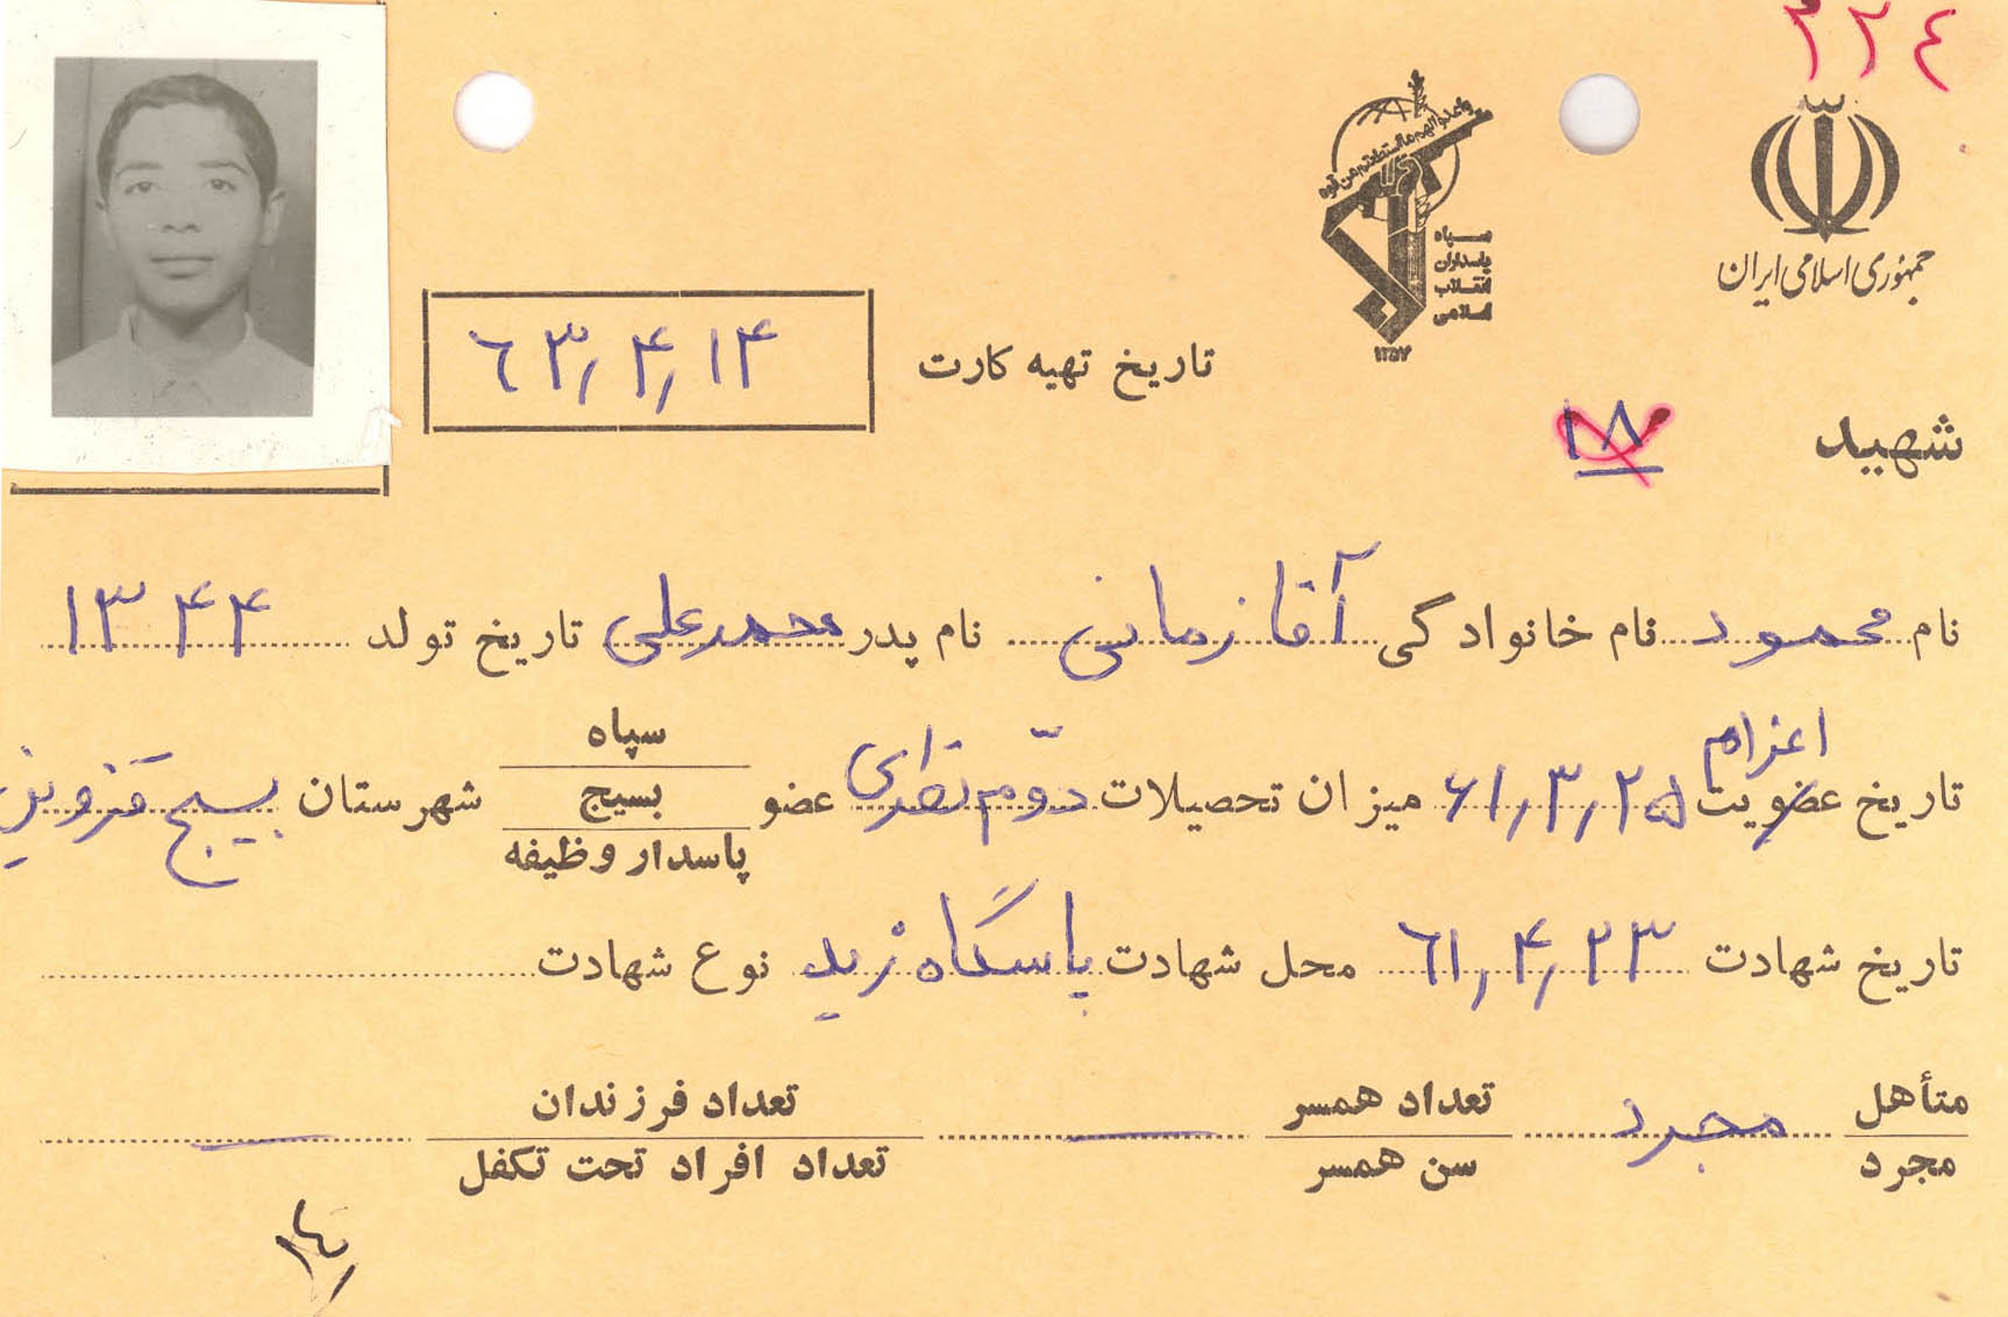 ۲۲٤
جمهوری اسلامی ایران
واعدوا لهم ما استطعتم من قوة
سپاه
پاسداران
انقلاب
اسلامی
۱۳۵۷
تاریخ تهیه کارت ۶۳٫۴٫۱۴
شهید ۱۸
نام محمود نام خانوادگی آقا زمانی نام پدر محمدعلی تاریخ تولد ۱۳۴۴
اعزام
تاریخ عضویت ۶۱٫۳٫۲۵ میزان تحصیلات دوّم نظری عضو سپاه بسیج پاسدار وظیفه شهرستان بسیج قزوین
تاریخ شهادت ۶۱٫۴٫۲۳ محل شهادت پاسگاه زید نوع شهادت
متأهل مجرد مجرد تعداد همسر سن همسر — تعداد فرزندان تعداد افراد تحت تکفل —